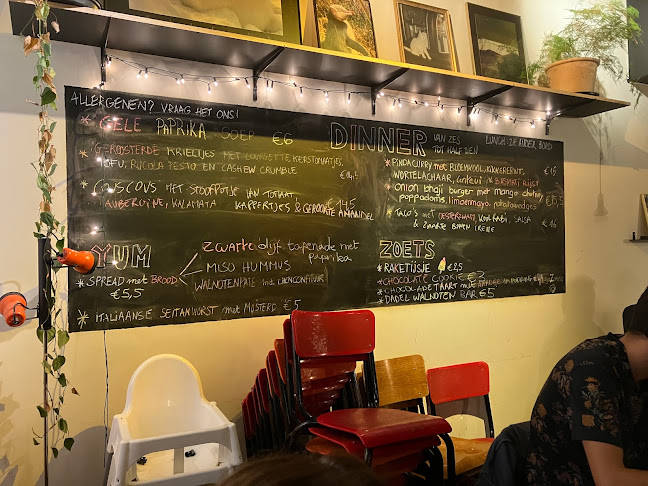 ALLERGENEN? VRAAG HET ONS!
* GELE PAPRIKA SOEP €6
* GEROOSTERDE KRIELTJES MET COURGETTE, KERSTOMAATJES,
TOFU, RUCOLA PESTO EN CASHEW CRUMBLE
* COUSCOUS MET STOOFPOTJE VAN TOMAAT,
AUBERGINE, KALAMATA KAPPERTJES & GEROOKTE AMANDEL
€14,5
YUM
* SPREAD met BROOD
€5,5
zwarte olijf tapenade met paprika
MISO HUMMUS
WALNOTENPATE met UIENCONFITUUR
* ITALIAANSE SEITANWORST met MOSTERD €5
DINNER VAN ZES
TOT HALF TIEN
LUNCH: ZIE ANDER BORD
* PINDACURRY met BLOEMKOOL, KIKKERERWT,
WORTELACHAAR, & BASMATI RIJST
€15
* onion bhaji burger met mango chutney,
poppadoms, limoenmayo,
€15,5
* TACO'S met OESTERZWAM, KOOLRABI, SALSA
& ZWARTE BONEN CREME
€16
ZOETS
* RAKETIJSJE €2,5
* CHOCOLATE COOKIE €3
* CHOCOLADETAART
* DADEL WALNOTEN BAR €5